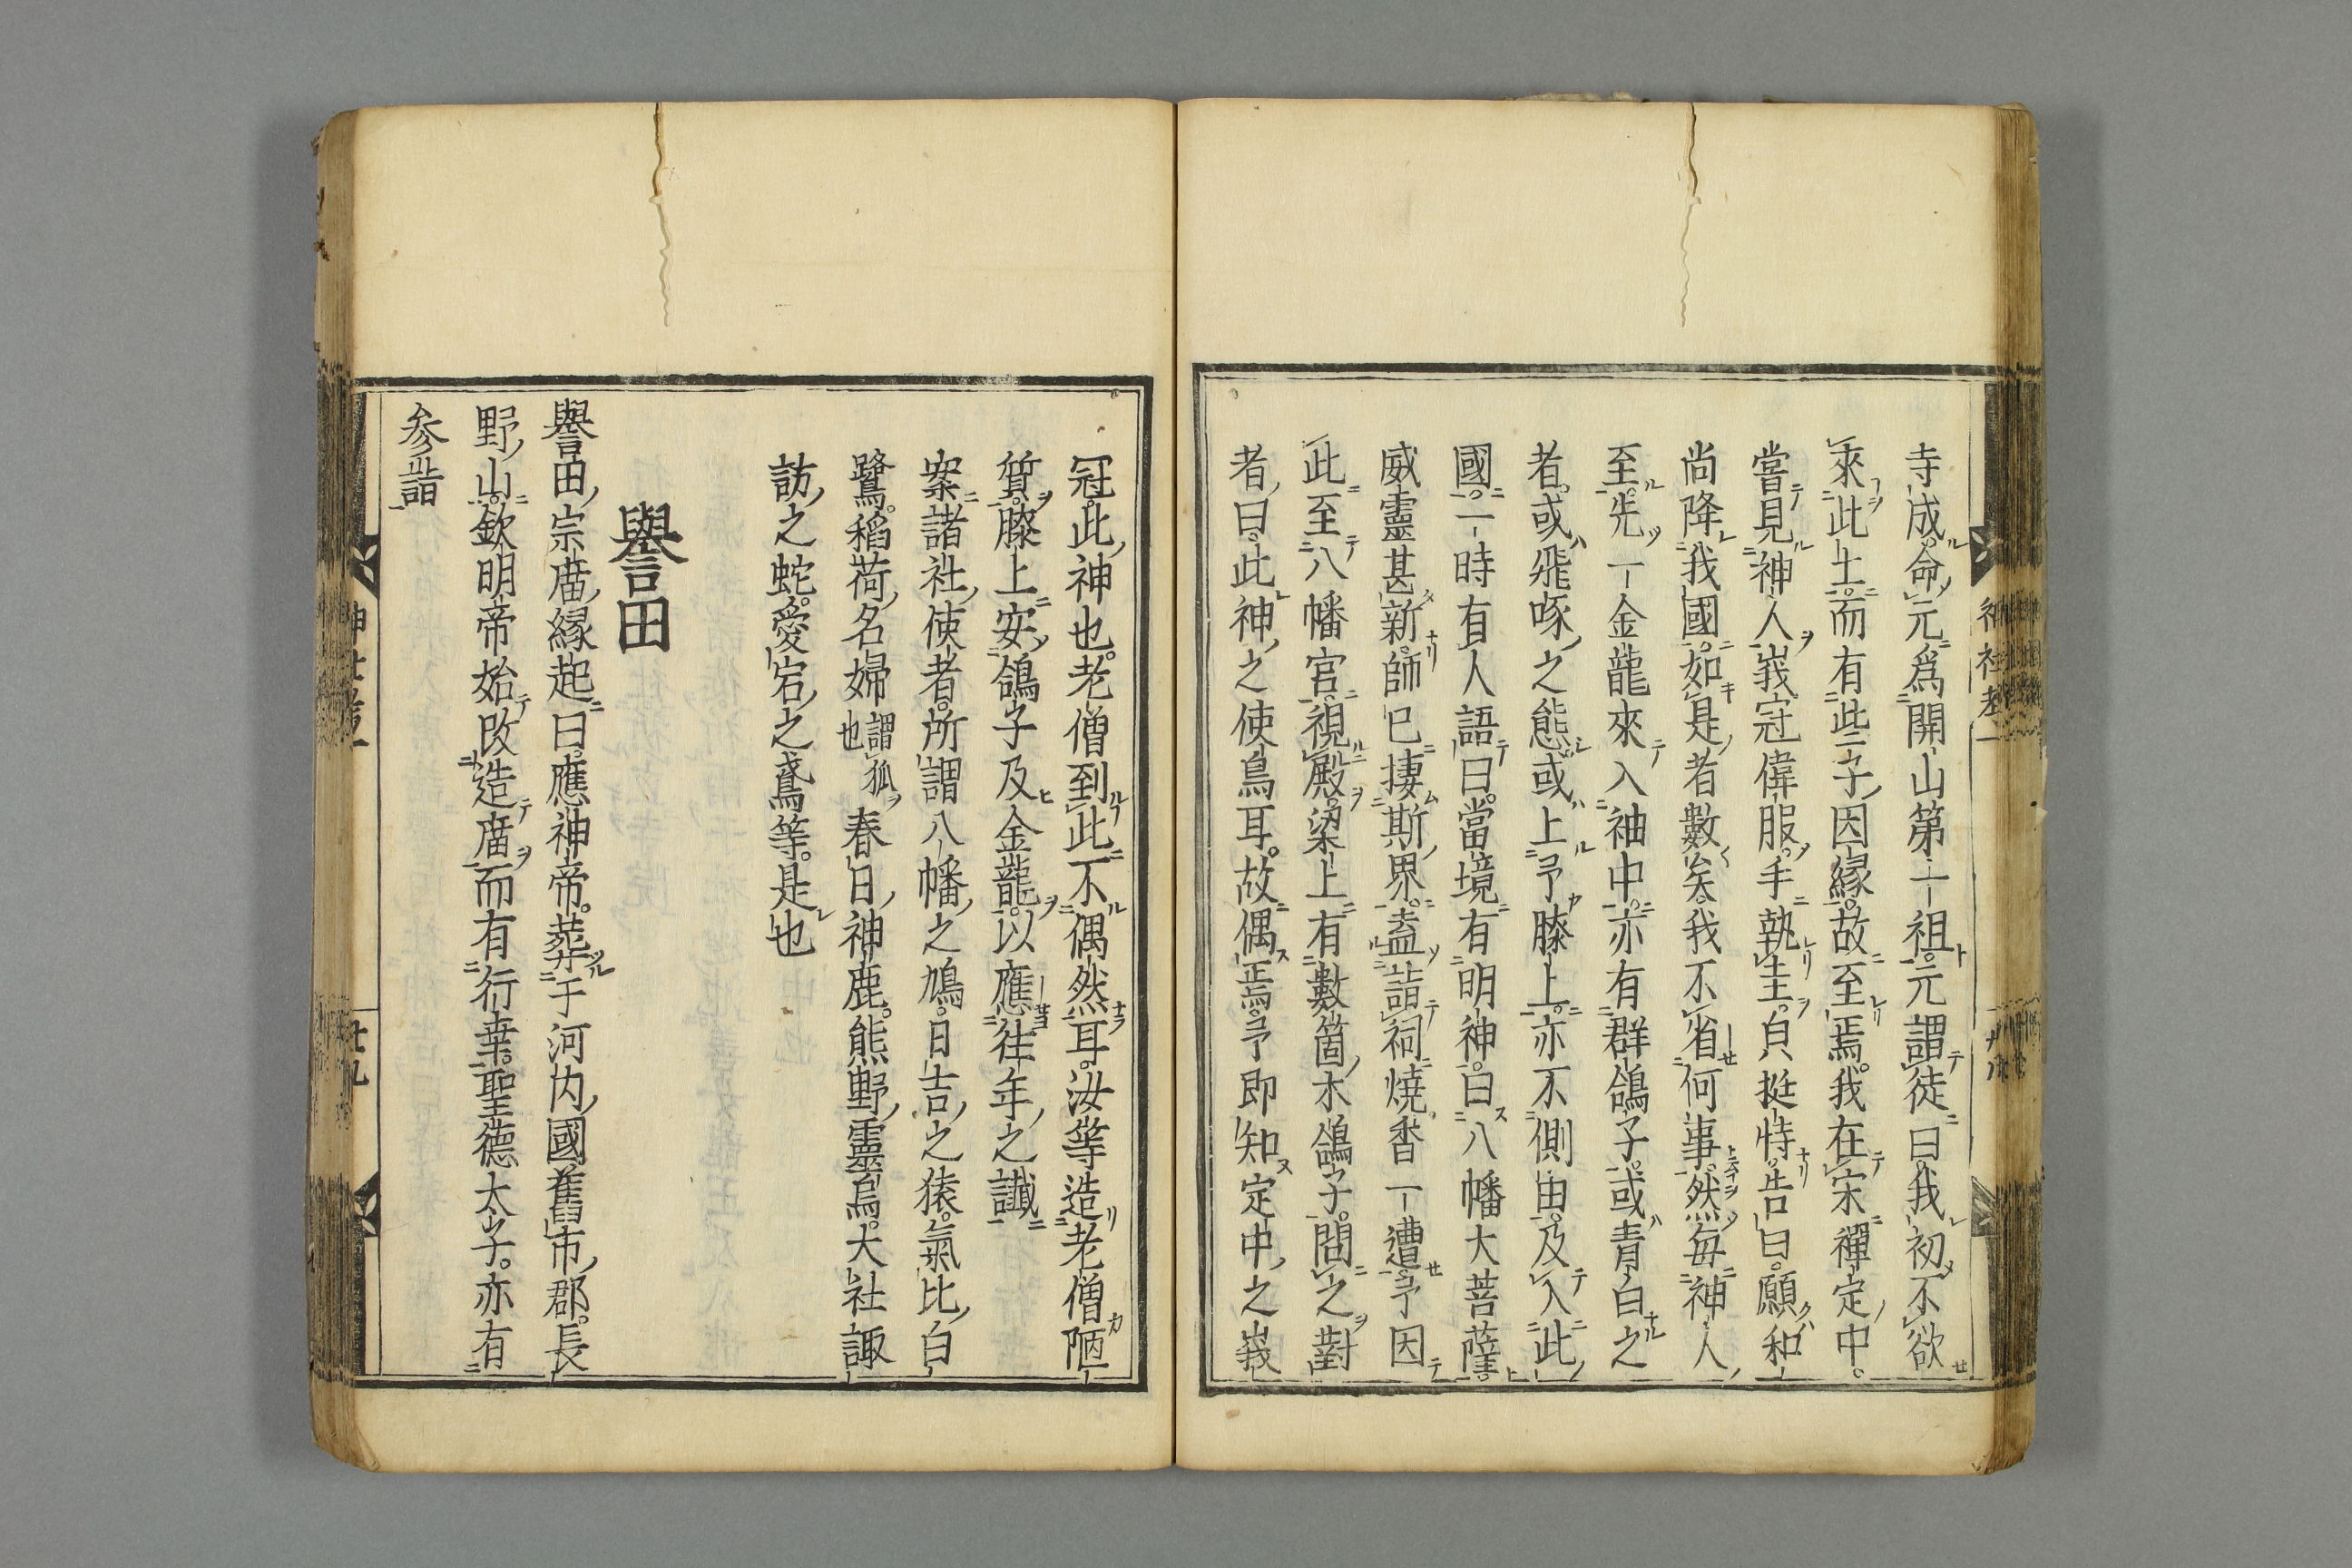 寺成命元爲開山第一祖元謂徒曰我初不欲
來此土而有些子因縁故至焉我在宋禪定中
嘗見神人峩冠偉服手執圭㒵挺特告曰願和
尚降我國如是者數矣我不省何事然毎神人
至先一金龍來入袖中亦有群鴿子或青白之
者或飛啄之態或上予膝上亦不測由及入此
國一時有人語曰當境有明神曰八幡大菩薩
威靈甚新師已捿斯界盍詣祠燒香一遭予因
此至八幡宮視殿梁上有數箇木鴿子問之對
者曰此神之使鳥耳故偶焉予即知定中之峩
冠此神也老僧到此不偶然耳汝等造老僧陋
質膝上安鴿子及金龍以應往年之讖
案諸社使者所謂八幡之鳩日吉之猿氣比白
鷺稻荷名婦謂狐也春日神鹿熊野靈烏大社諏
訪之蛇愛宕之鳶等是也
譽田
譽田宗廣縁起曰應神帝葬于河内國舊市郡長
野山欽明帝始改造廣而有行幸聖德太子亦有
参詣
神社考一
神社考一
廿九